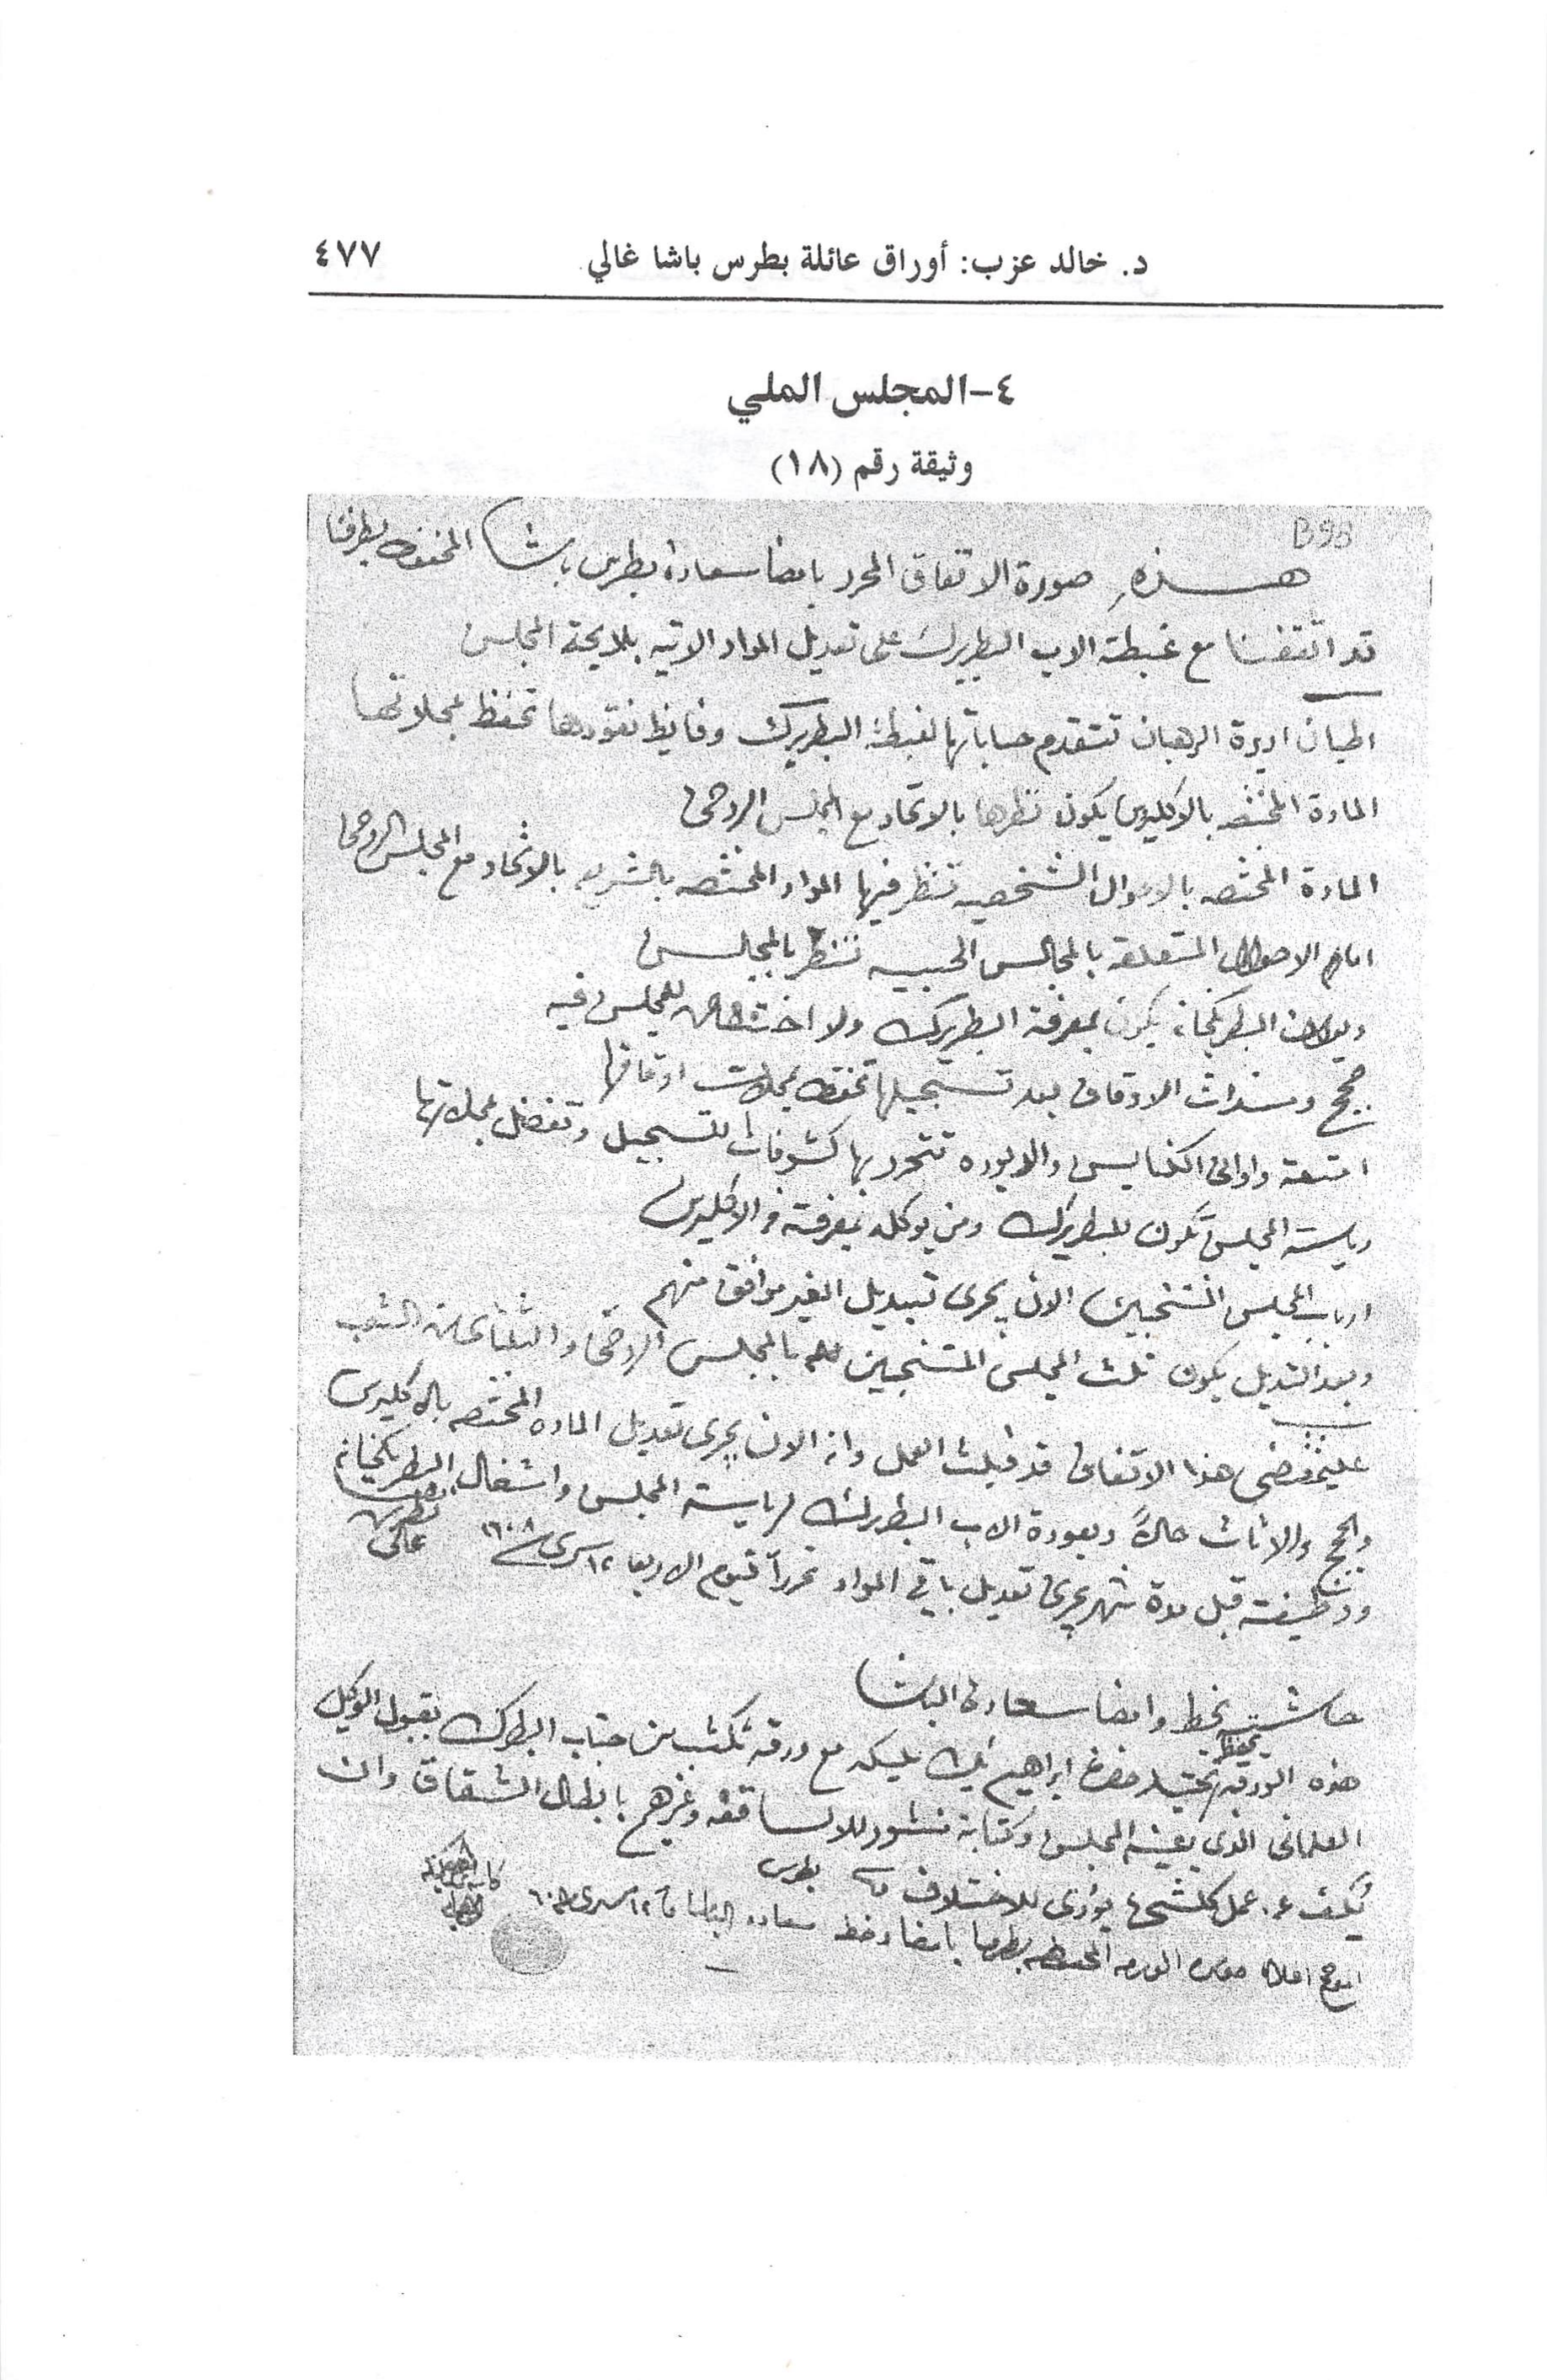 د. خالد عزب: أوراق عائلة بطرس باشا غالي
٤٧٧
٤-المجلس الملي
وثيقة رقم (١٨)
B98
هـــذه صورة الاتفاق المحرر بامضا سعادة بطرس باشا المحفوظه بطرفنا
قد اتفقنا مع غبطة الاب البطريرك على تعديل المواد الاتيه بلايحة المجلس
اطيان اديرة الرهبان تتقدم حساباتها لغبطة البطريرك وفايظ نقودها تحفظ بمحلاتها
المادة المختصه بالاكليروس يكون نظرها بالاتحاد مع المجلس الروحى
المادة المختصه بالاحوال الشخصيه تنظر فيها المواد المختصه بالشريعه بالاتحاد مع المجلس الروحى
اما الاحوال المتعلقه بالمجالس الحسبيه تنظر بالمجلس
ديوان البطريكخانه يكون بمعرفة البطريرك ولا اختصاص للمجلس فيه
حجج وسندات الاوقاف بعد تسجيلها تحفظ بمحلات اوقافها
امتعة واوانى الكنايس والاديره تتحرر بها كشوفات للتسجيل وتفضل بمحلاتها
رياسة المجلس تكون للبطريرك ومن يوكله بمعرفته من الاكليروس
ارباب المجلس المنتخبين الان يجرى تبديل الغير موافق منهم
وبعد التبديل يكون ثلث المجلس المنتخبين بالمجلس الروحى والثلثان من الشعب
على مقتضى هذا الاتفاق قد قبلت العمل وانه الان يجرى تعديل الماده المختصه بالاكليروس
والحجج والاثاث حالاً وبعودة الاب البطريرك لرياسة المجلس واشغال البطريكخانه
ووظيفته قبل مدة شهر يجرى تعديل باقى المواد تحرراً فى يوم الاربعا ١٢ مسرى ١٦٠٨
بطرس
غالى
حاشيه بخط وامضا سعادة الباشا
هذه الورقه تحفظ بيد حضرة ابراهيم بك مع ورقه تكتب من جناب البطرك بقبول الوكيل
العلمانى الذى يعينه المجلس وكتابة منشور للاساقفه وغيرهم بابطال الشقاق وان
يكف عن عمل كلشى يؤدى للاختلاف بطرس
صورة الورقه المحفوظه بطرفنا بامضا وخط سعادة الباشا ١٢ مسرى ١٦٠٨